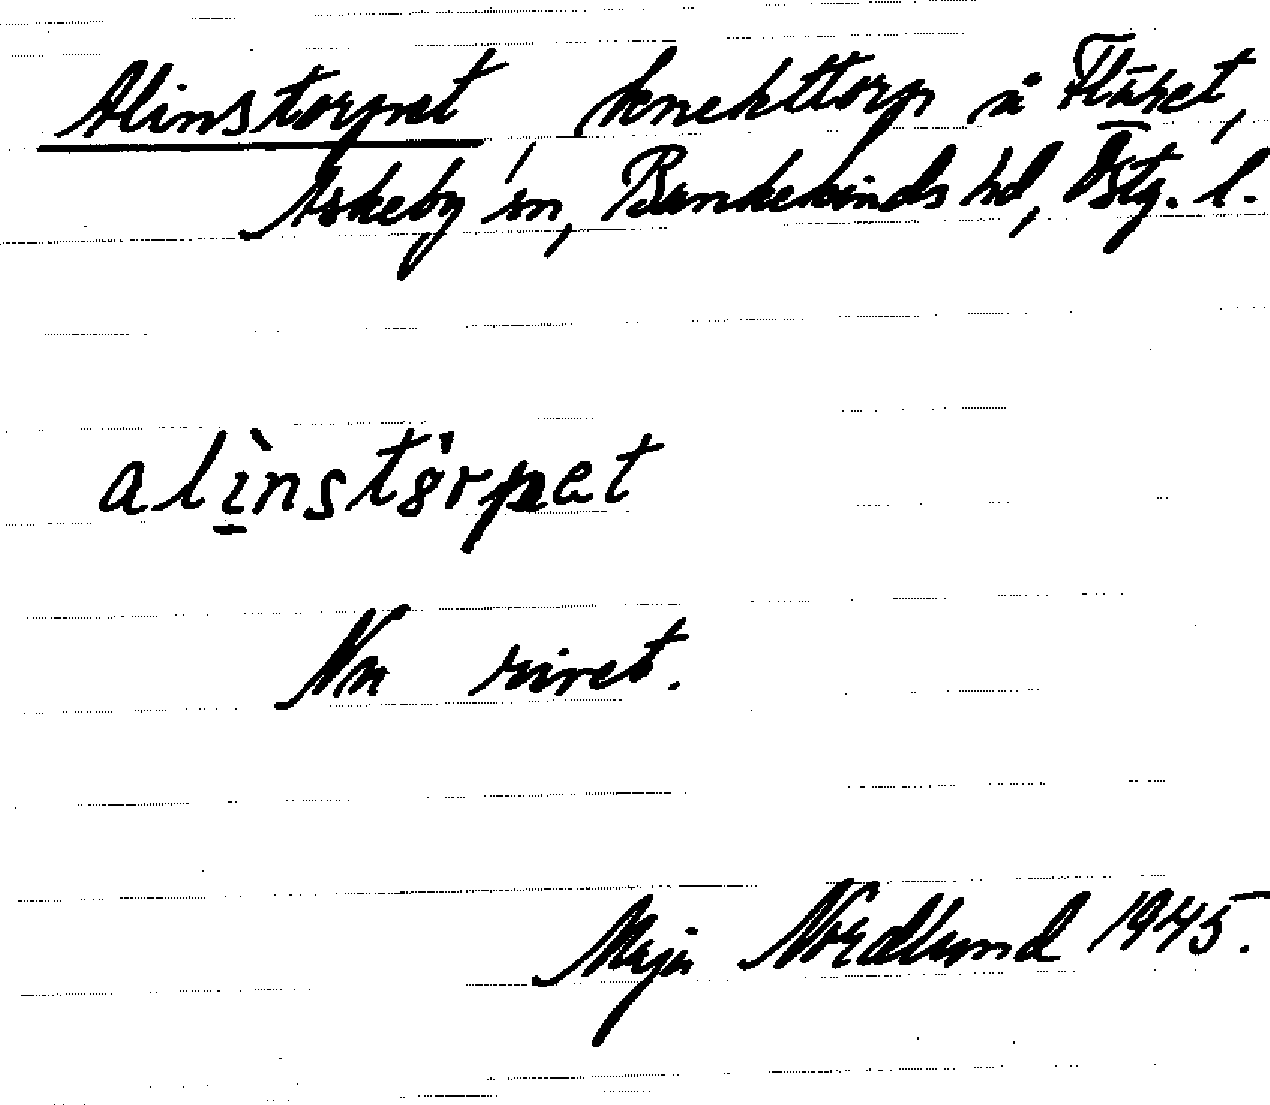 Alinstorpet knekttorp å Flähet,
Askeby sn, Bankekinds hd, Östg. l.
alìnstórpet
Nu rivet.
Maja Nordlund 1945.